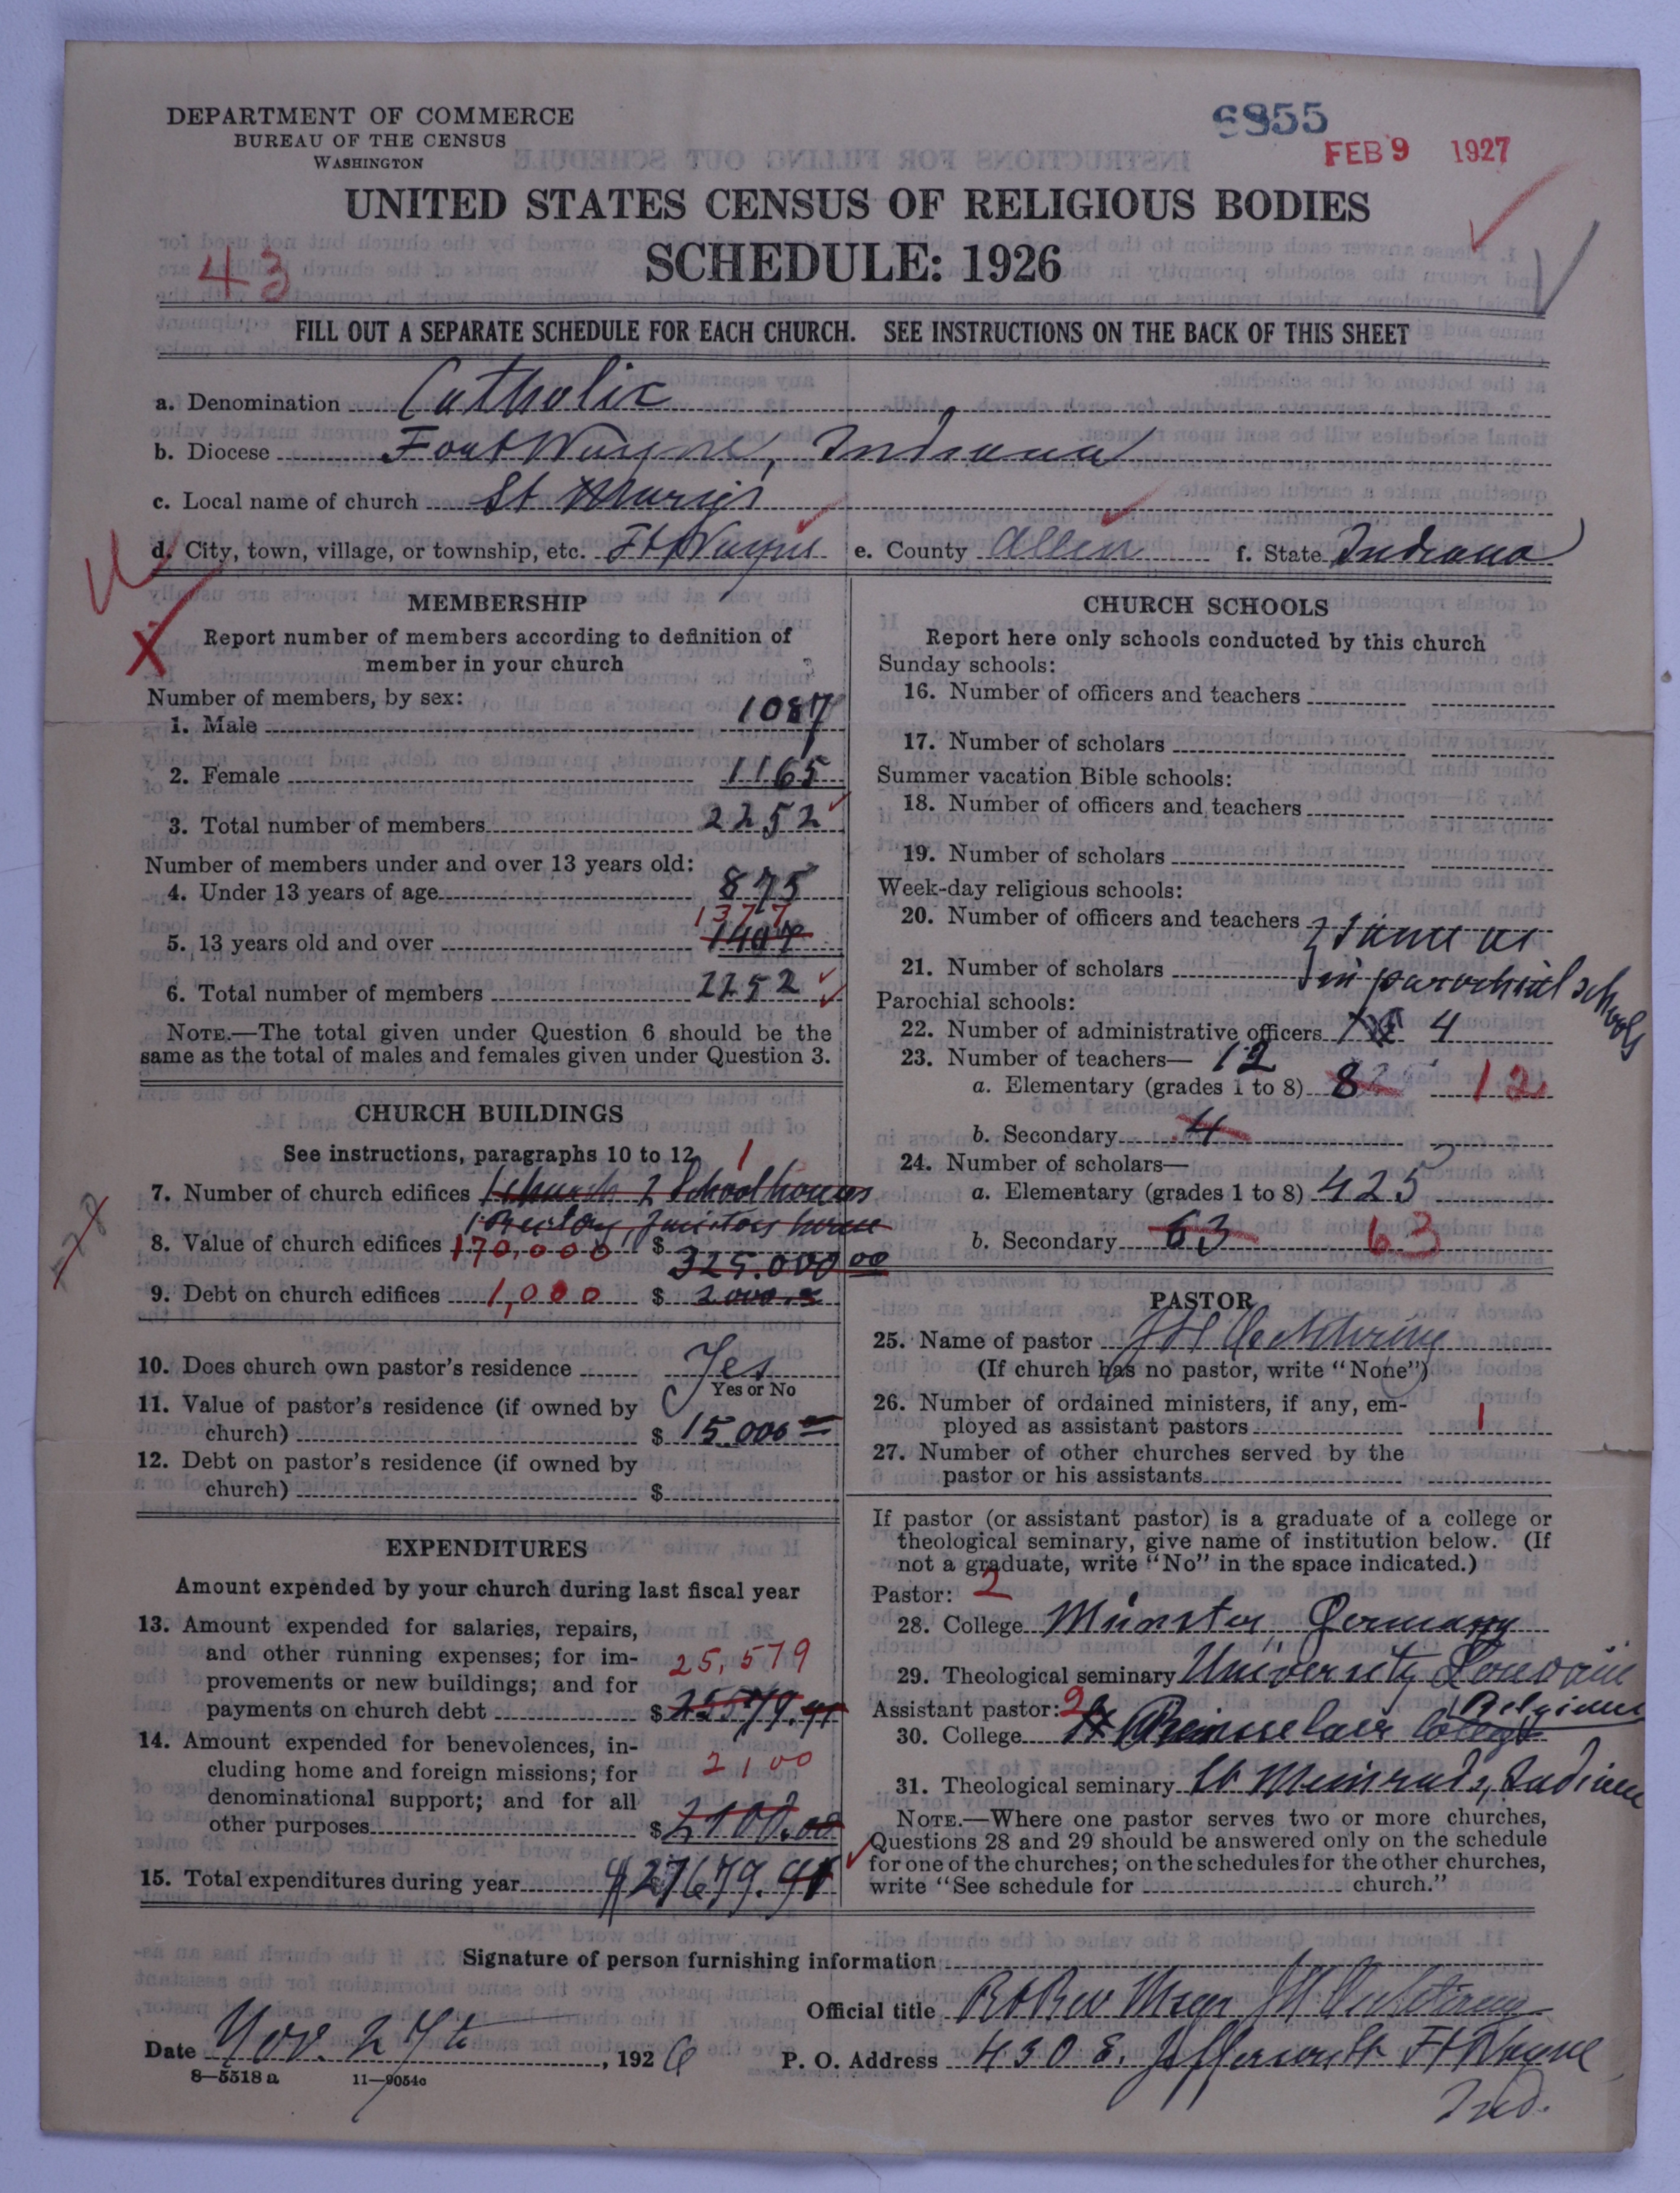 DEPARTMENT OF COMMERCE
BUREAU OF THE CENSUS
WASHINGTON
6855
FEB 9 1927
UNITED STATES CENSUS OF RELIGIOUS BODIES
SCHEDULE: 1926
43
FILL OUT A SEPARATE SCHEDULE FOR EACH CHURCH. SEE INSTRUCTIONS ON THE BACK OF THIS SHEET
a. Denomination Catholic
b. Diocese Fort Wayne, Indiana
c. Local name of church St Mary's
d. City, town, village, or township, etc. Ft Wayne e. County Allen f. State Indiana
MEMBERSHIP
Report number of members according to definition of
member in your church
Number of members, by sex:
1. Male 1087
2. Female 1165
3. Total number of members 2252
Number of members under and over 13 years old:
4. Under 13 years of age 875
1377
5. 13 years old and over
6. Total number of members 2252
NOTE.—The total given under Question 6 should be the
same as the total of males and females given under Question 3.
CHURCH BUILDINGS
See instructions, paragraphs 10 to 12 1
7. Number of church edifices 1 church 2 Schoolhouses
1 Rectory, Janitors home
8. Value of church edifices 170,000 $ 325.000 00
9. Debt on church edifices 1,000 $ 2000
10. Does church own pastor's residence Yes
Yes or No
11. Value of pastor's residence (if owned by
church) $ 15 000
12. Debt on pastor's residence (if owned by
church) $
EXPENDITURES
Amount expended by your church during last fiscal year
13. Amount expended for salaries, repairs,
and other running expenses; for im-
provements or new buildings; and for 25,579
payments on church debt $ 25579.91
14. Amount expended for benevolences, in-
cluding home and foreign missions; for 2100
denominational support; and for all
other purposes $ 2100.00
15. Total expenditures during year $27679.91
CHURCH SCHOOLS
Report here only schools conducted by this church
Sunday schools:
16. Number of officers and teachers
17. Number of scholars
Summer vacation Bible schools:
18. Number of officers and teachers
19. Number of scholars
Week-day religious schools:
20. Number of officers and teachers } same as
21. Number of scholars in parochial schools
Parochial schools:
22. Number of administrative officers 4
23. Number of teachers— 12
a. Elementary (grades 1 to 8) 8 12
b. Secondary 4
24. Number of scholars—
a. Elementary (grades 1 to 8) 425
b. Secondary 63 63
PASTOR
25. Name of pastor J H Oechtering
(If church has no pastor, write "None")
26. Number of ordained ministers, if any, em-
ployed as assistant pastors 1
27. Number of other churches served by the
pastor or his assistants
If pastor (or assistant pastor) is a graduate of a college or
theological seminary, give name of institution below. (If
not a graduate, write "No" in the space indicated.)
Pastor: 2
28. College Münster, Germany
29. Theological seminary University Louvain
Belgium
Assistant pastor: 2
30. College Rensselaer College
31. Theological seminary St Meinrads, Indiana
NOTE.—Where one pastor serves two or more churches,
Questions 28 and 29 should be answered only on the schedule
for one of the churches; on the schedules for the other churches,
write "See schedule for church."
Signature of person furnishing information
Official title Rt Rev Msgr J H Oechtering
Date Nov. 27th, 1926 P. O. Address 430 E. Jefferson St Ft Wayne
Ind.
8—5518a 11—9054c